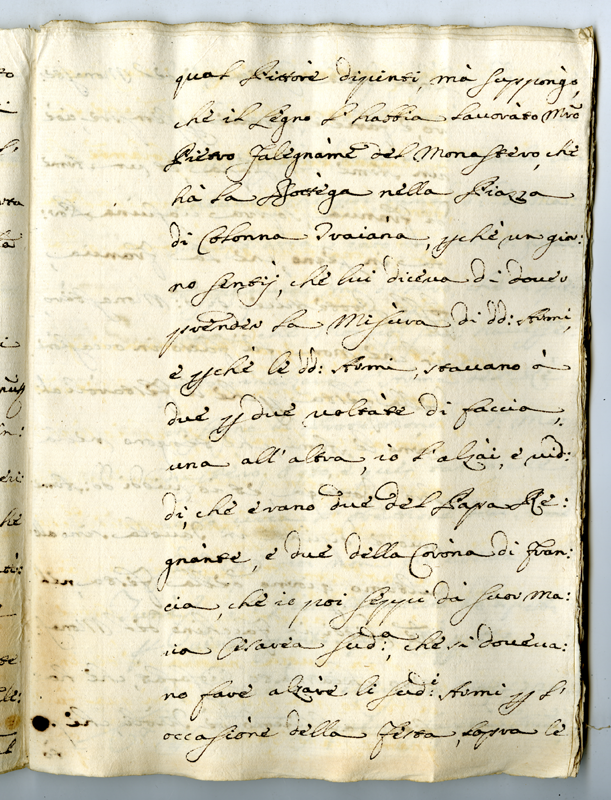 qual Pittore dipinti, mà suppongo,
che il legno l'habbia lavorato Mrõ
Pietro falegname del Monastero, che
hà la Bottega nella Piazza
di Colonna Traiana, pchè un gior:
no sentij, che lui diceva di dover
prender la Misura di dd: Armi,
e pchè le dd: Armi, stavano à
due p due voltate di faccia,
una all'altra, io l'alzai, e vid:
di, che erano due del Papa Re:
gnante, e due della Corona di Fran:
cia, che io poi seppi dà Suor Ma:
ria Cesarea sud:a, che si doveva:
no fare alzare li sud:i Armi p l'
occasione della festa, sopra le